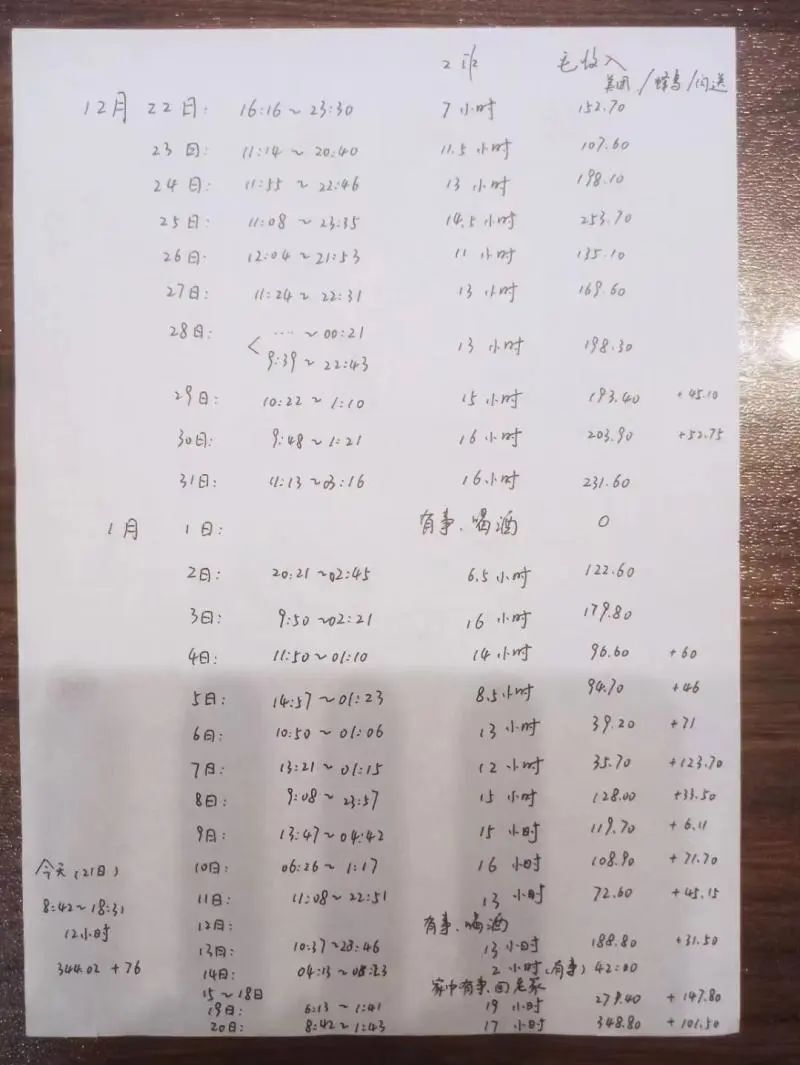 2班 毛收入
美团/蜂鸟/闪送
12月 22日: 16:16~23:30 7小时 152.70
23日: 11:14~20:40 11.5小时 107.60
24日: 11:55~22:46 13小时 198.10
25日: 11:08~23:35 14.5小时 253.70
26日: 12:04~21:53 11小时 135.10
27日: 11:24~22:31 13小时 169.60
28日: ....~00:21
< 13小时 198.30
9:39~22:43
29日: 10:22~1:10 15小时 193.40 +45.10
30日: 9:48~1:21 16小时 203.90 +52.75
31日: 11:13~03:16 16小时 231.60
1月 1日: 有事、喝酒 0
2日: 20:21~02:45 6.5小时 122.60
3日: 9:50~02:21 16小时 179.80
4日: 11:50~01:10 14小时 96.60 +60
5日: 14:57~01:23 8.5小时 94.70 +46
6日: 10:50~01:06 13小时 39.20 +71
7日: 13:21~01:15 12小时 35.70 +123.70
8日: 9:08~23:57 15小时 128.00 +33.50
9日: 13:47~04:42 15小时 119.70 +6.11
10日: 06:26~1:17 16小时 108.90 +71.70
11日: 11:08~22:51 13小时 72.60 +45.15
12日: 有事、喝酒
13日: 10:37~23:46 13小时 188.80 +31.50
14日: 04:13~08:23 2小时(有事) 42.00
15~18日 家中有事、回老家
19日: 6:13~1:41 19小时 279.40 +147.80
20日: 8:42~1:43 17小时 348.80 +101.50
今天(21日)
8:42~18:31
12小时
344.02+76